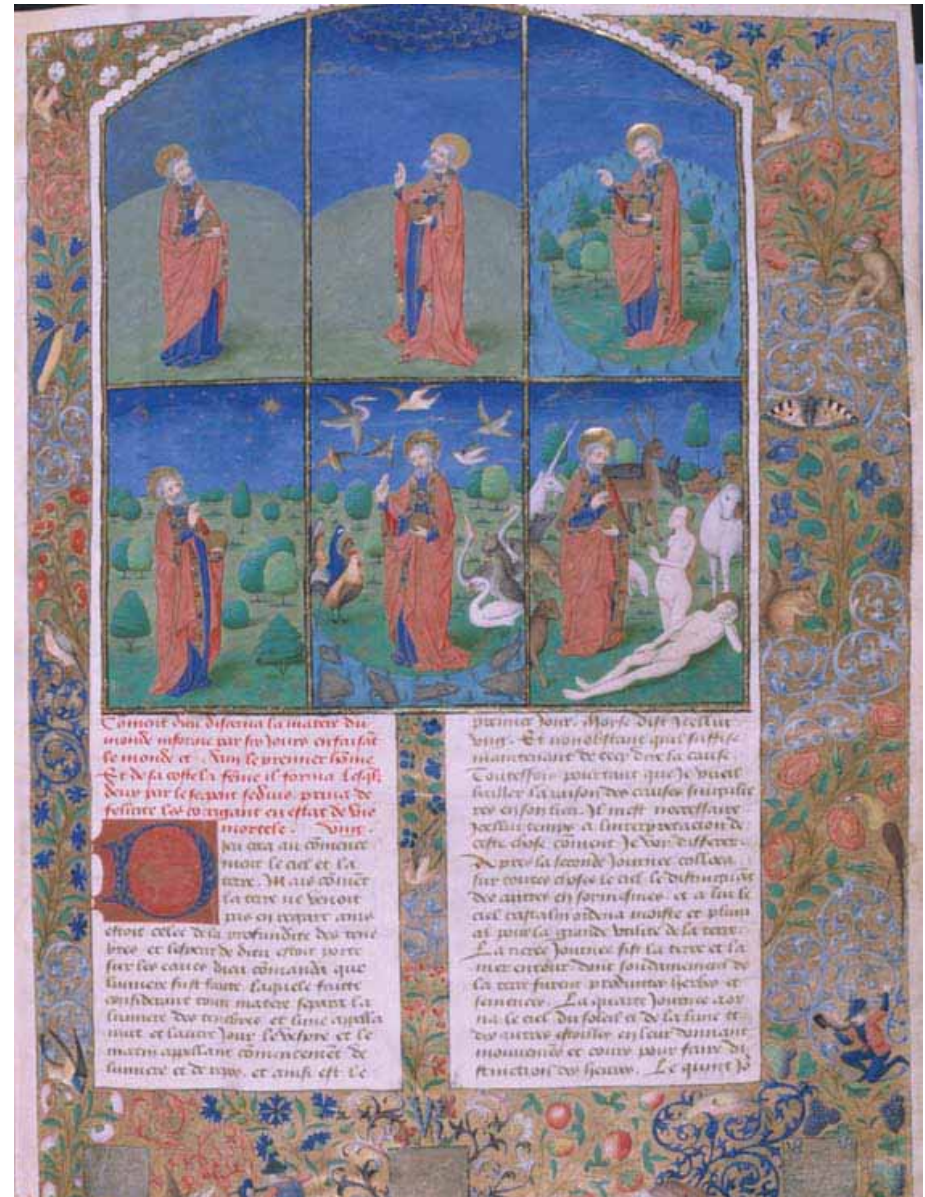 Coment dieu discerna la matere du
monde informe par six jours en faisāt
le monde et . dun le premier hōme
Et de sa coste la fēme il forma
deux par le serpent seduis priua de
felicite les corrigant en estat de vie
mortele .
au cōmence
ment le ciel et la
terre . Mais cōment
la terre ne venoit
pas en regart ains
estoit celee de la profundite des tene
bres et lesperit de dieu estoit porte
sur les eaues dieu cōmanda que
lumiere fust faitte . laquele faitte
considerant toute matere separa la
lumiere des tenebres et lune appella
nuit et lautre jour le vespre et le
matin appellant cōmencement de
lumiere et de repos . et ainsi est le
premier jour . Moyse dist icellui
ung . Et nonobstant quil suffise
maintenant de cecy dire la cause .
Touteffois pourtant que je vueil
baillier la raison des causes
res en son lieu . Il mest necessaire
icellui temps a linterpretacion de
ceste chose cōment differer .
Apres la seconde journee colloca
sur toutes choses le ciel le distinguāt
des autres et a lui le
ciel cristalin ordena moiste et pluui
al pour la grande vtilite de la terre .
La tierce journee fist la terre et la
mer entour dont fondamenteement de
la terre furent produites herbes et
semences . La quarte journee aor
na le ciel du soleil et de la lune et
des autres estoilles en leur donnant
mouuemēs et cours pour faire di
stinction des heures . Le quint jo